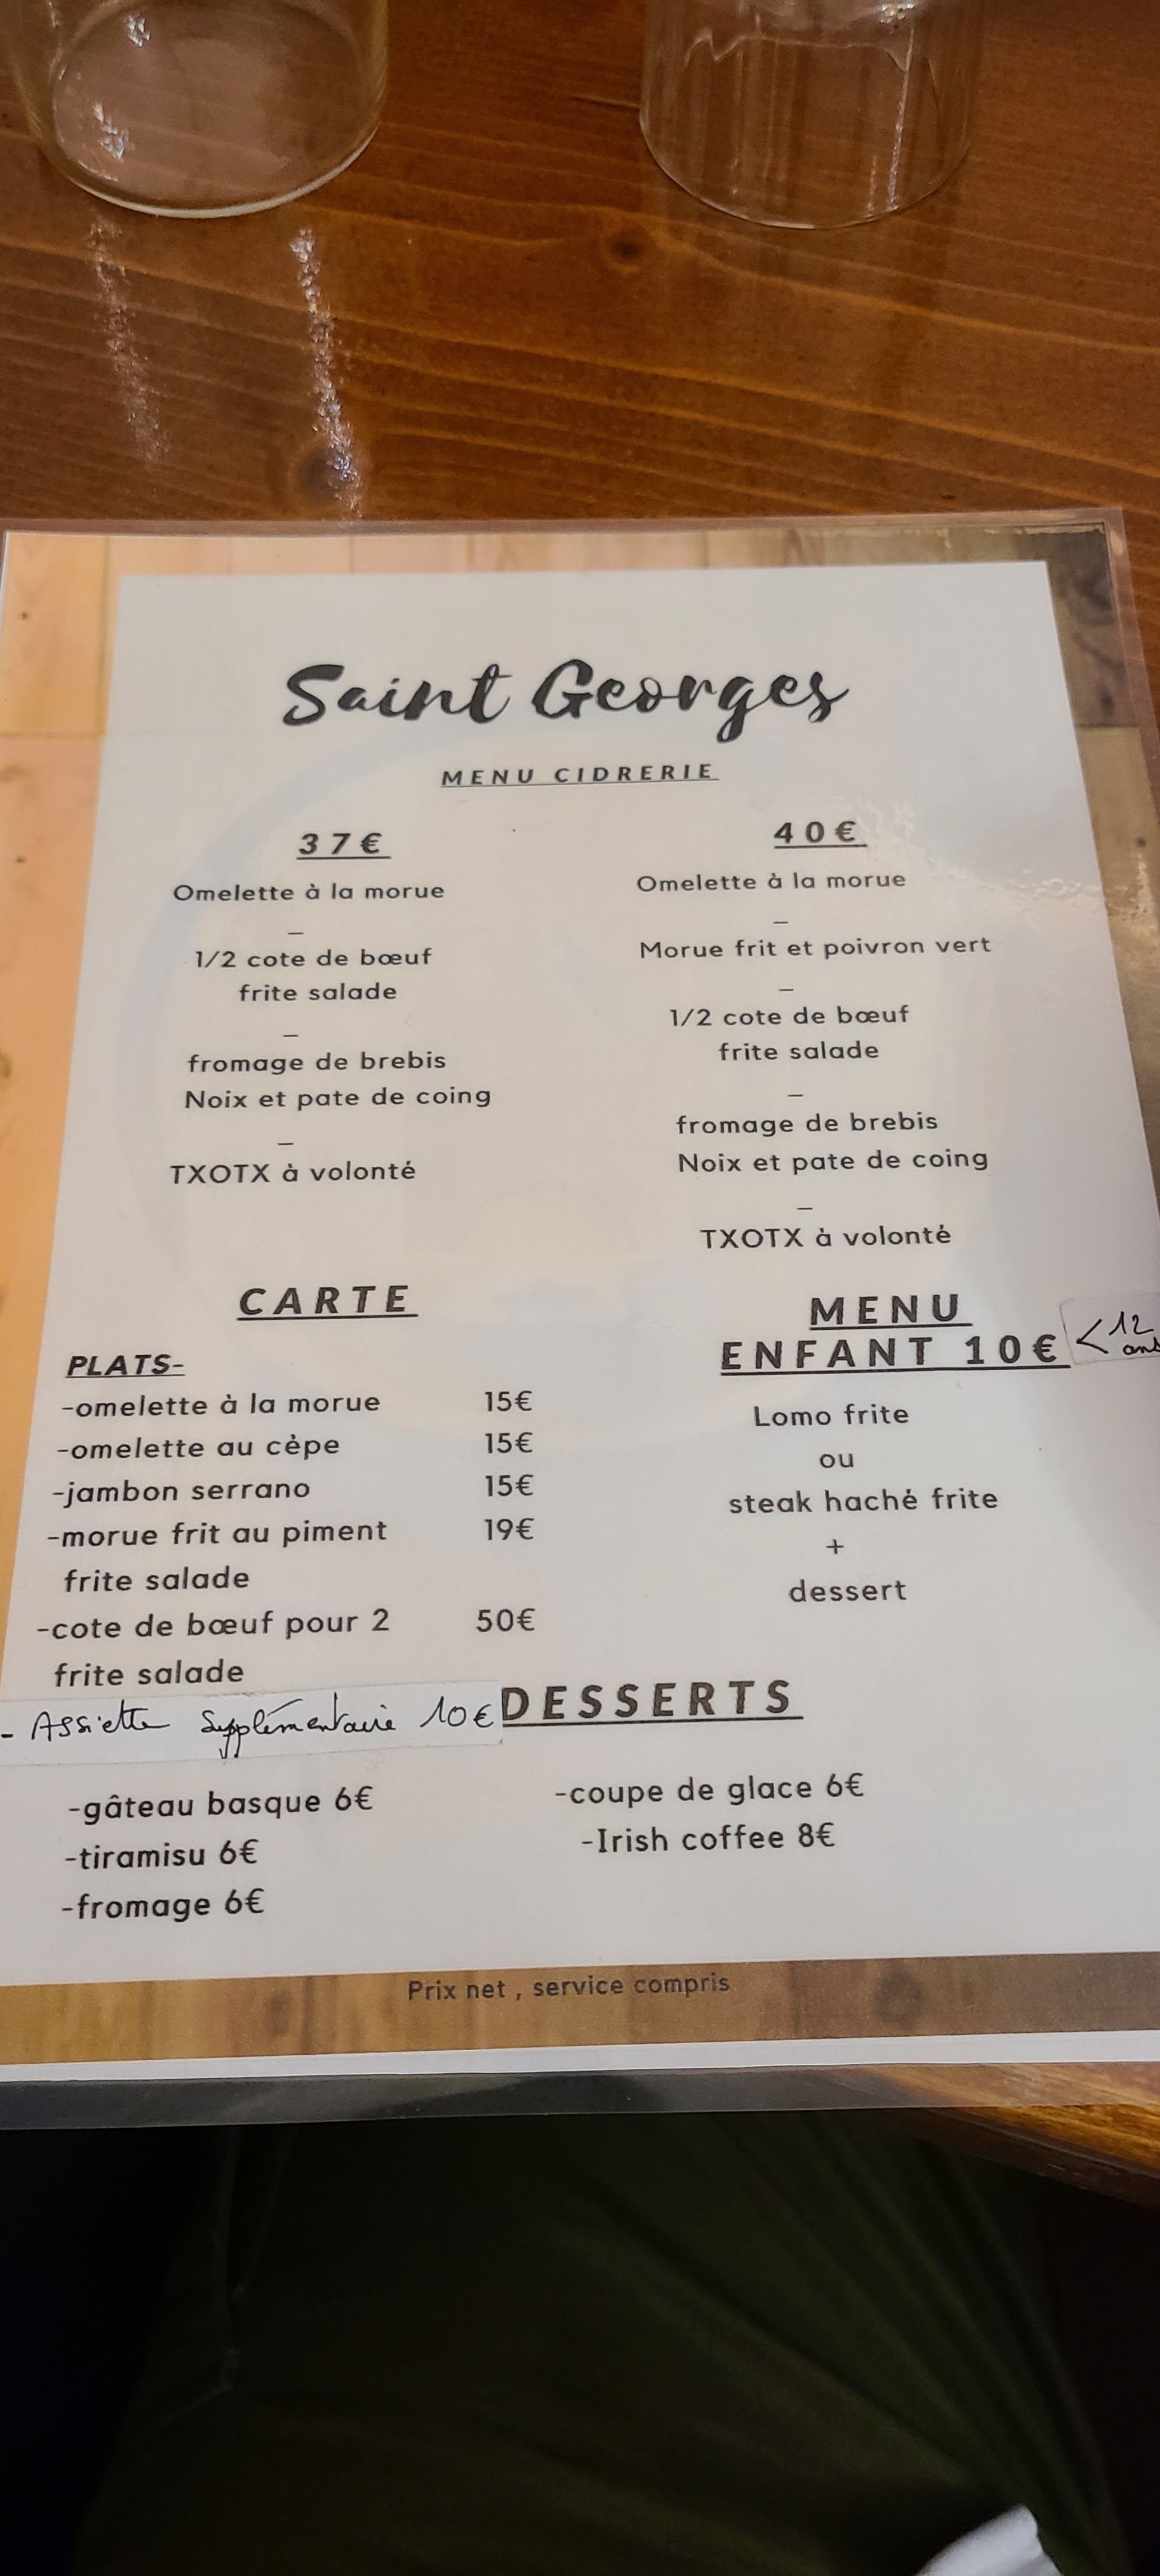 Saint Georges
MENU CIDRERIE
37€
Omelette à la morue
–
1/2 cote de bœuf
frite salade
–
fromage de brebis
Noix et pate de coing
–
TXOTX à volonté
40€
Omelette à la morue
–
Morue frit et poivron vert
–
1/2 cote de bœuf
frite salade
–
fromage de brebis
Noix et pate de coing
–
TXOTX à volonté
CARTE
PLATS-
-omelette à la morue 15€
-omelette au cèpe 15€
-jambon serrano 15€
-morue frit au piment 19€
frite salade
-cote de bœuf pour 2 50€
frite salade
- Assiette Supplémentaire 10€
MENU
ENFANT 10€ < 12
ans
Lomo frite
ou
steak haché frite
+
dessert
DESSERTS
-gâteau basque 6€
-tiramisu 6€
-fromage 6€
-coupe de glace 6€
-Irish coffee 8€
Prix net , service compris